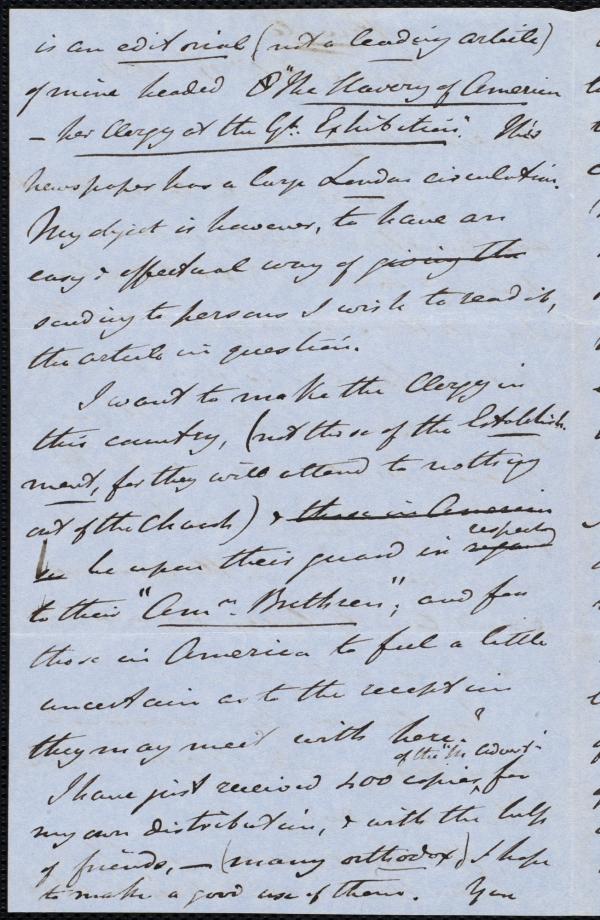 is an editorial (not a leading article)
of mine headed "The Slavery of America
– her Clergy at the Gt. Exhibition". This
newspaper has a large London circulation.
My object is however, to have an
easy & effectual way of giving the
sending to persons I wish to read it,
the article in question.
I want to make the Clergy in
this country, (not those of the Establish-
ment, for they will attend to nothing
out of the Church) & those in America
be upon their guard in regard respect
to their "Amn. Brethren", and for
those in America to feel a little
uncertain as to the reception
they may meet with here."
of the "M. Advert.
I have just received 400 copies, for
my own distribution, & with the help
of friends, – (many orthodox) I hope
to make a good use of them. You